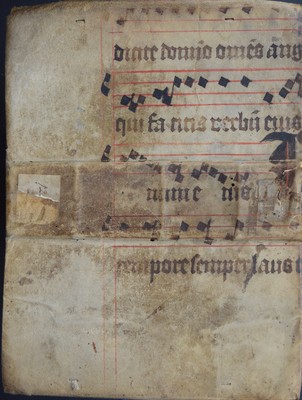 dicite domīo om̄es ang
qui facitis verbū eius
tempore semper laus